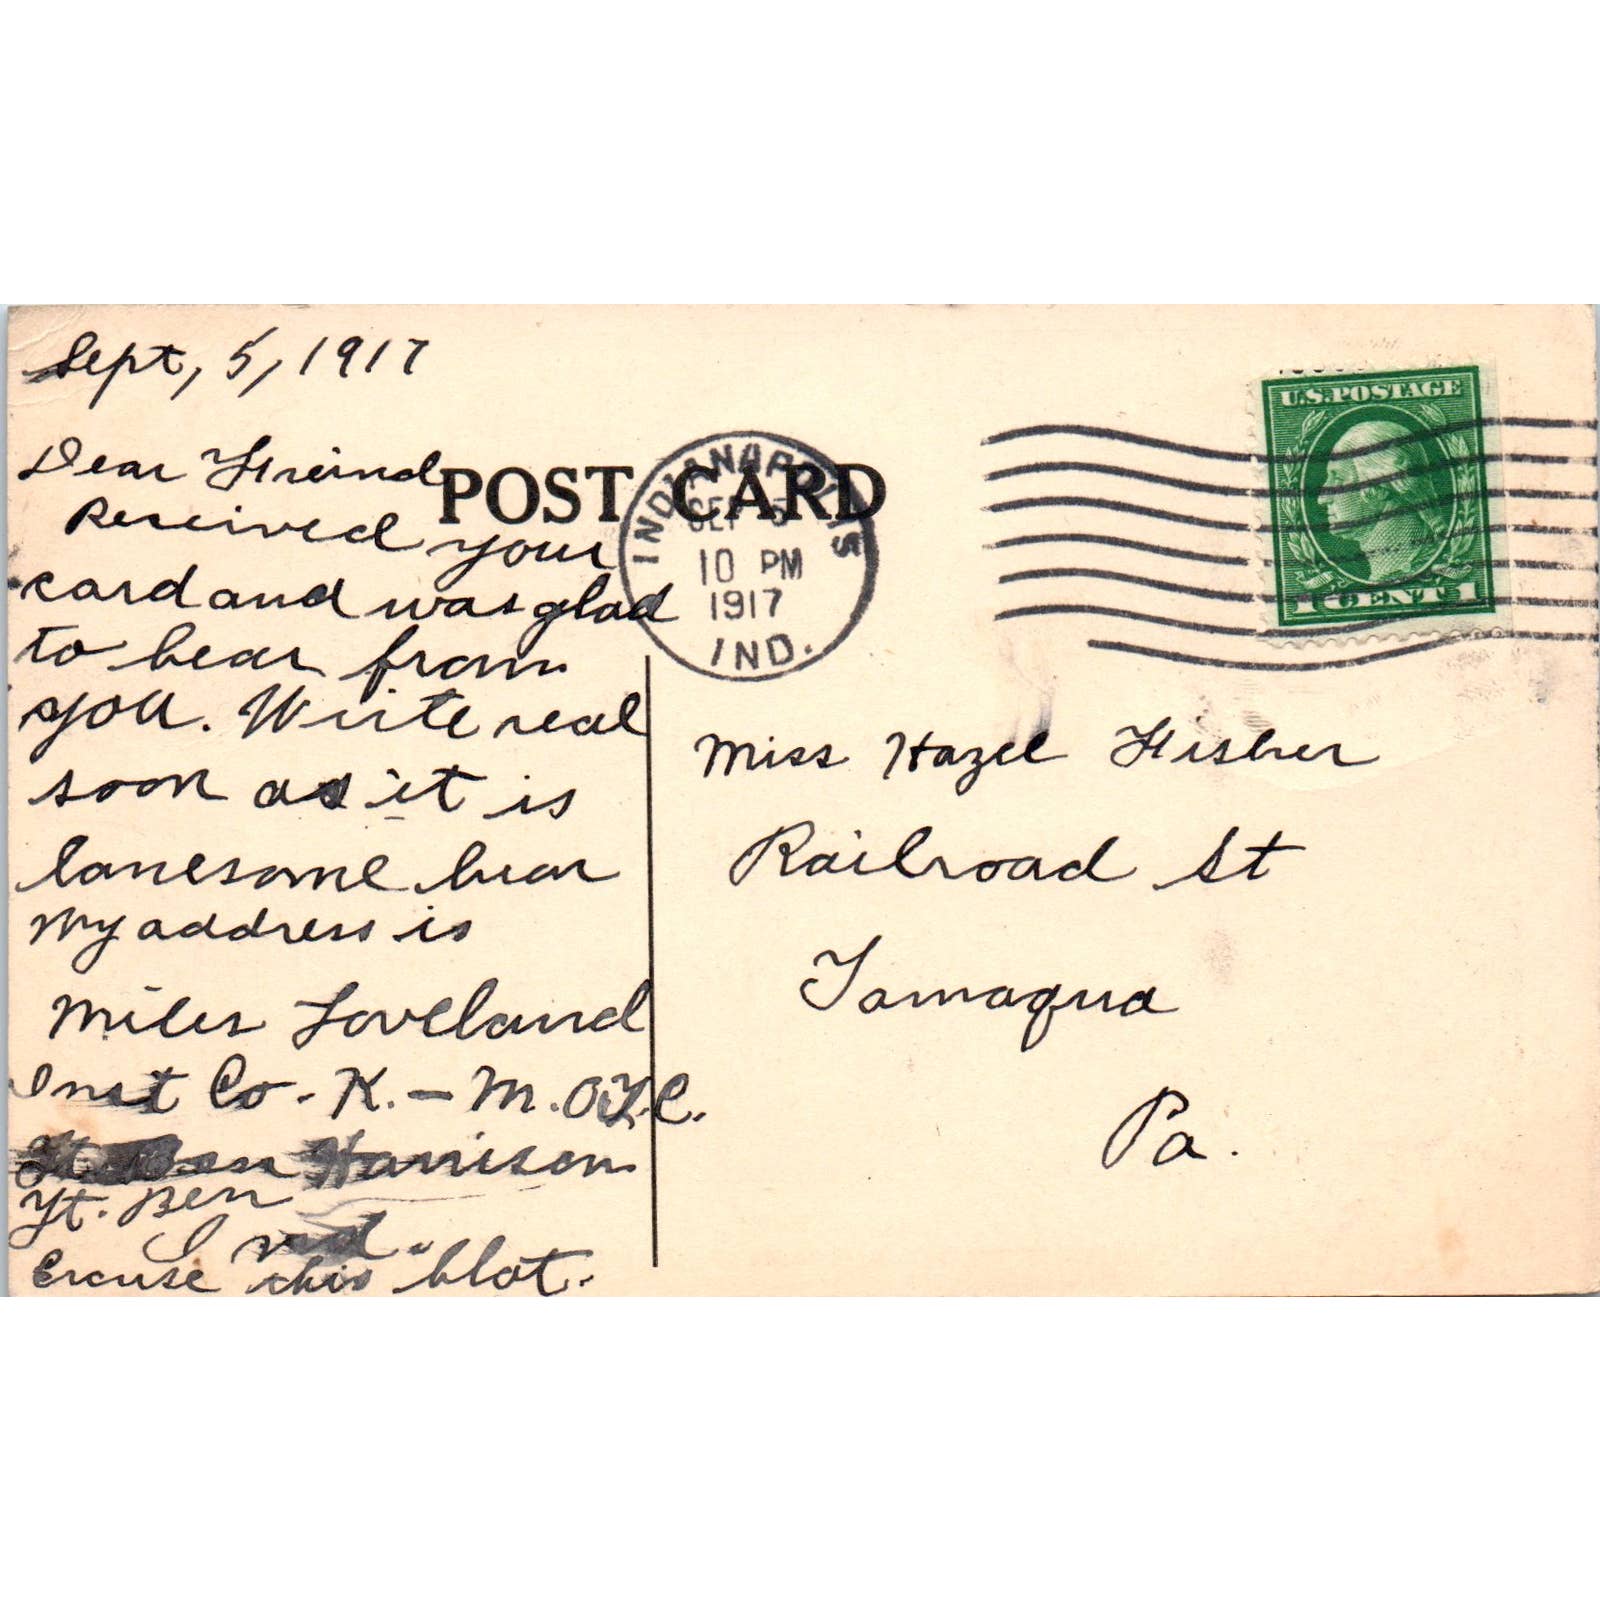 Sept, 5, 1917
Dear Freind
Received your
card and was glad
to hear from
you. Write real
soon as it is
lonesome hear
My address is
Miles Loveland
Inst Co. K. - M.O.T.C.
Ft. Ben Harrison
Ft. Ben
Ind.
Excuse this blot.
POST CARD
INDIANAPOLIS
SEP 5
10 PM
1917
IND.
U.S. POSTAGE
1 CENT 1
Miss Hazel Fisher
Railroad St
Tamaqua
Pa.